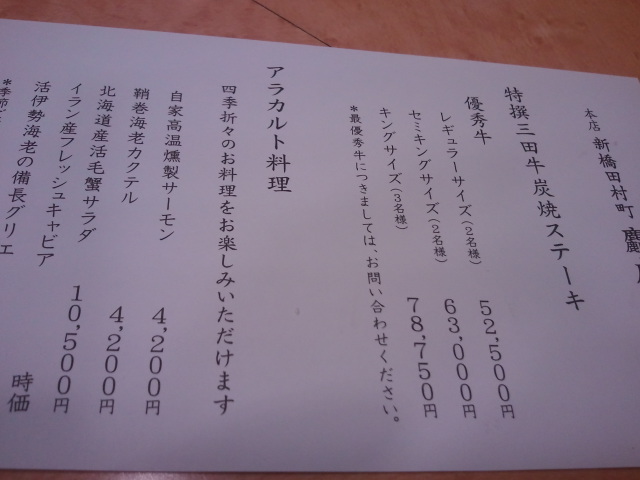 本店 新橋田村町 麤
特撰三田牛炭焼ステーキ
優秀牛
レギュラーサイズ(2名様) 52,500円
セミキングサイズ(2名様) 63,000円
キングサイズ(3名様) 78,750円
*最優秀牛につきましては、お問い合わせください。
アラカルト料理
四季折々のお料理をお楽しみいただけます
自家高温燻製サーモン 4,200円
鞘巻海老カクテル 4,200円
北海道産活毛蟹サラダ 10,500円
イラン産フレッシュキャビア 時価
活伊勢海老の備長グリエ
*季節